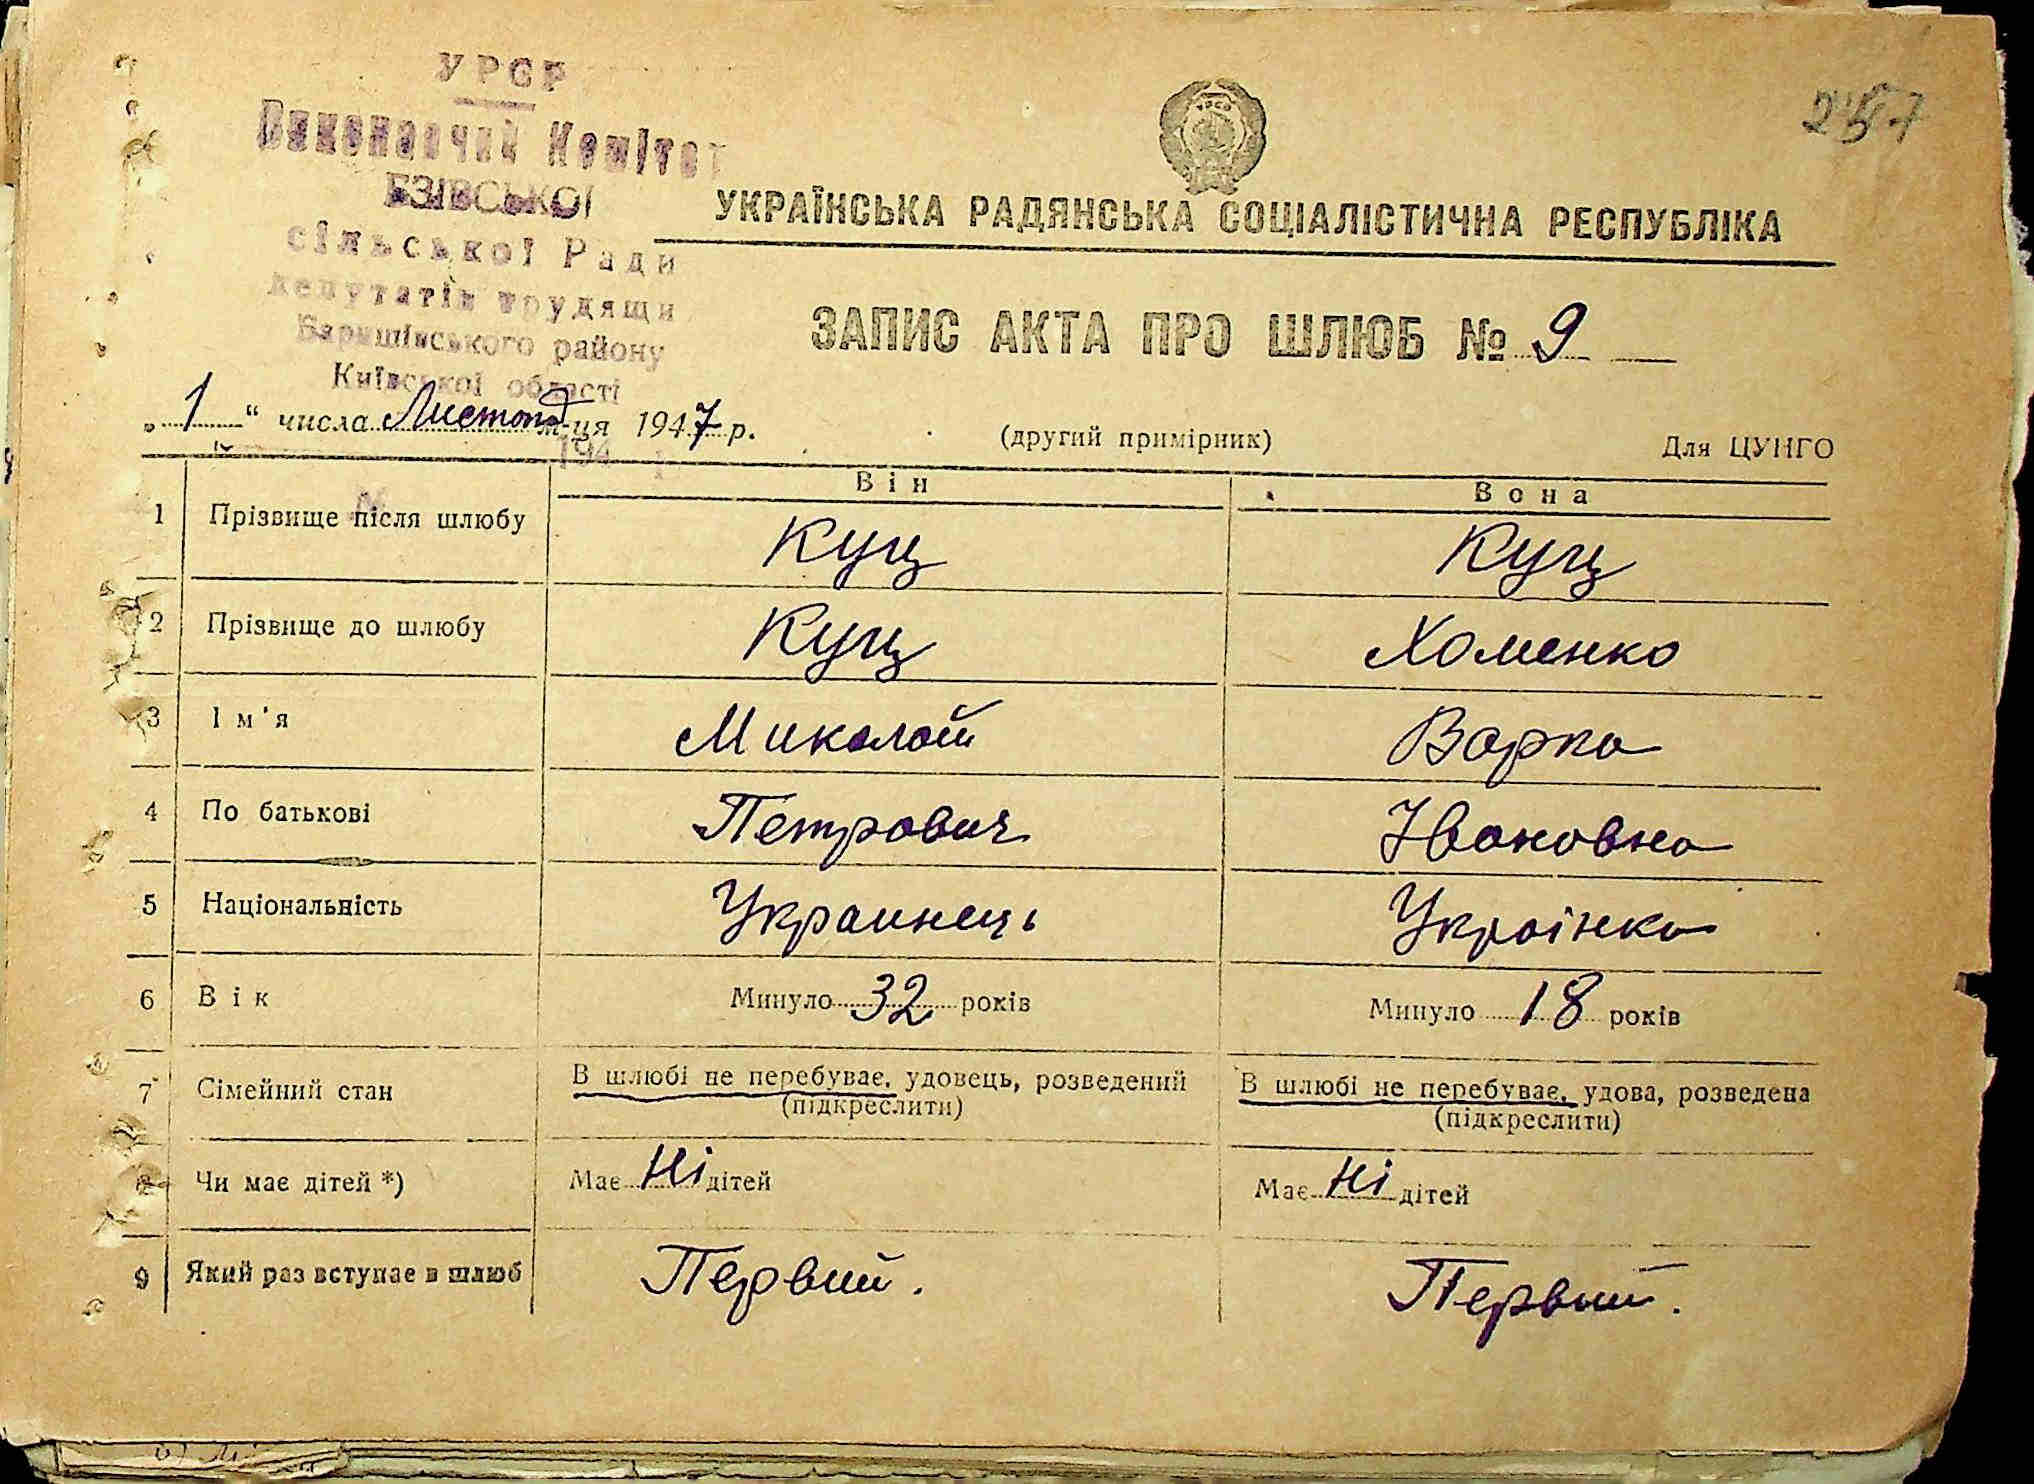 УРСР
Виконавчий Комітет
БЗІВСЬКОЇ
сільської Ради
депутатів трудящи
Баришівського району
Київської області
257
УРСР
УКРАЇНСЬКА РАДЯНСЬКА СОЦІАЛІСТИЧНА РЕСПУБЛІКА
ЗАПИС АКТА ПРО ШЛЮБ № 9
„1“ числа Листопад м-ця 1947 р.
194 р
(другий примірник)
Для ЦУНГО
Він
Вона
1 Прізвище після шлюбу Куц Куц
2 Прізвище до шлюбу Куц Хоменко
3 Ім'я Миколай Варка
4 По батькові Петрович Івановна
5 Національність Украинець Українка
6 Вік Минуло 32 років Минуло 18 років
7 Сімейний стан В шлюбі не перебуває, удовець, розведений В шлюбі не перебуває, удова, розведена
(підкреслити) (підкреслити)
8 Чи має дітей *) Має Ні дітей Має Ні дітей
9 Який раз вступає в шлюб Первий. Первий.